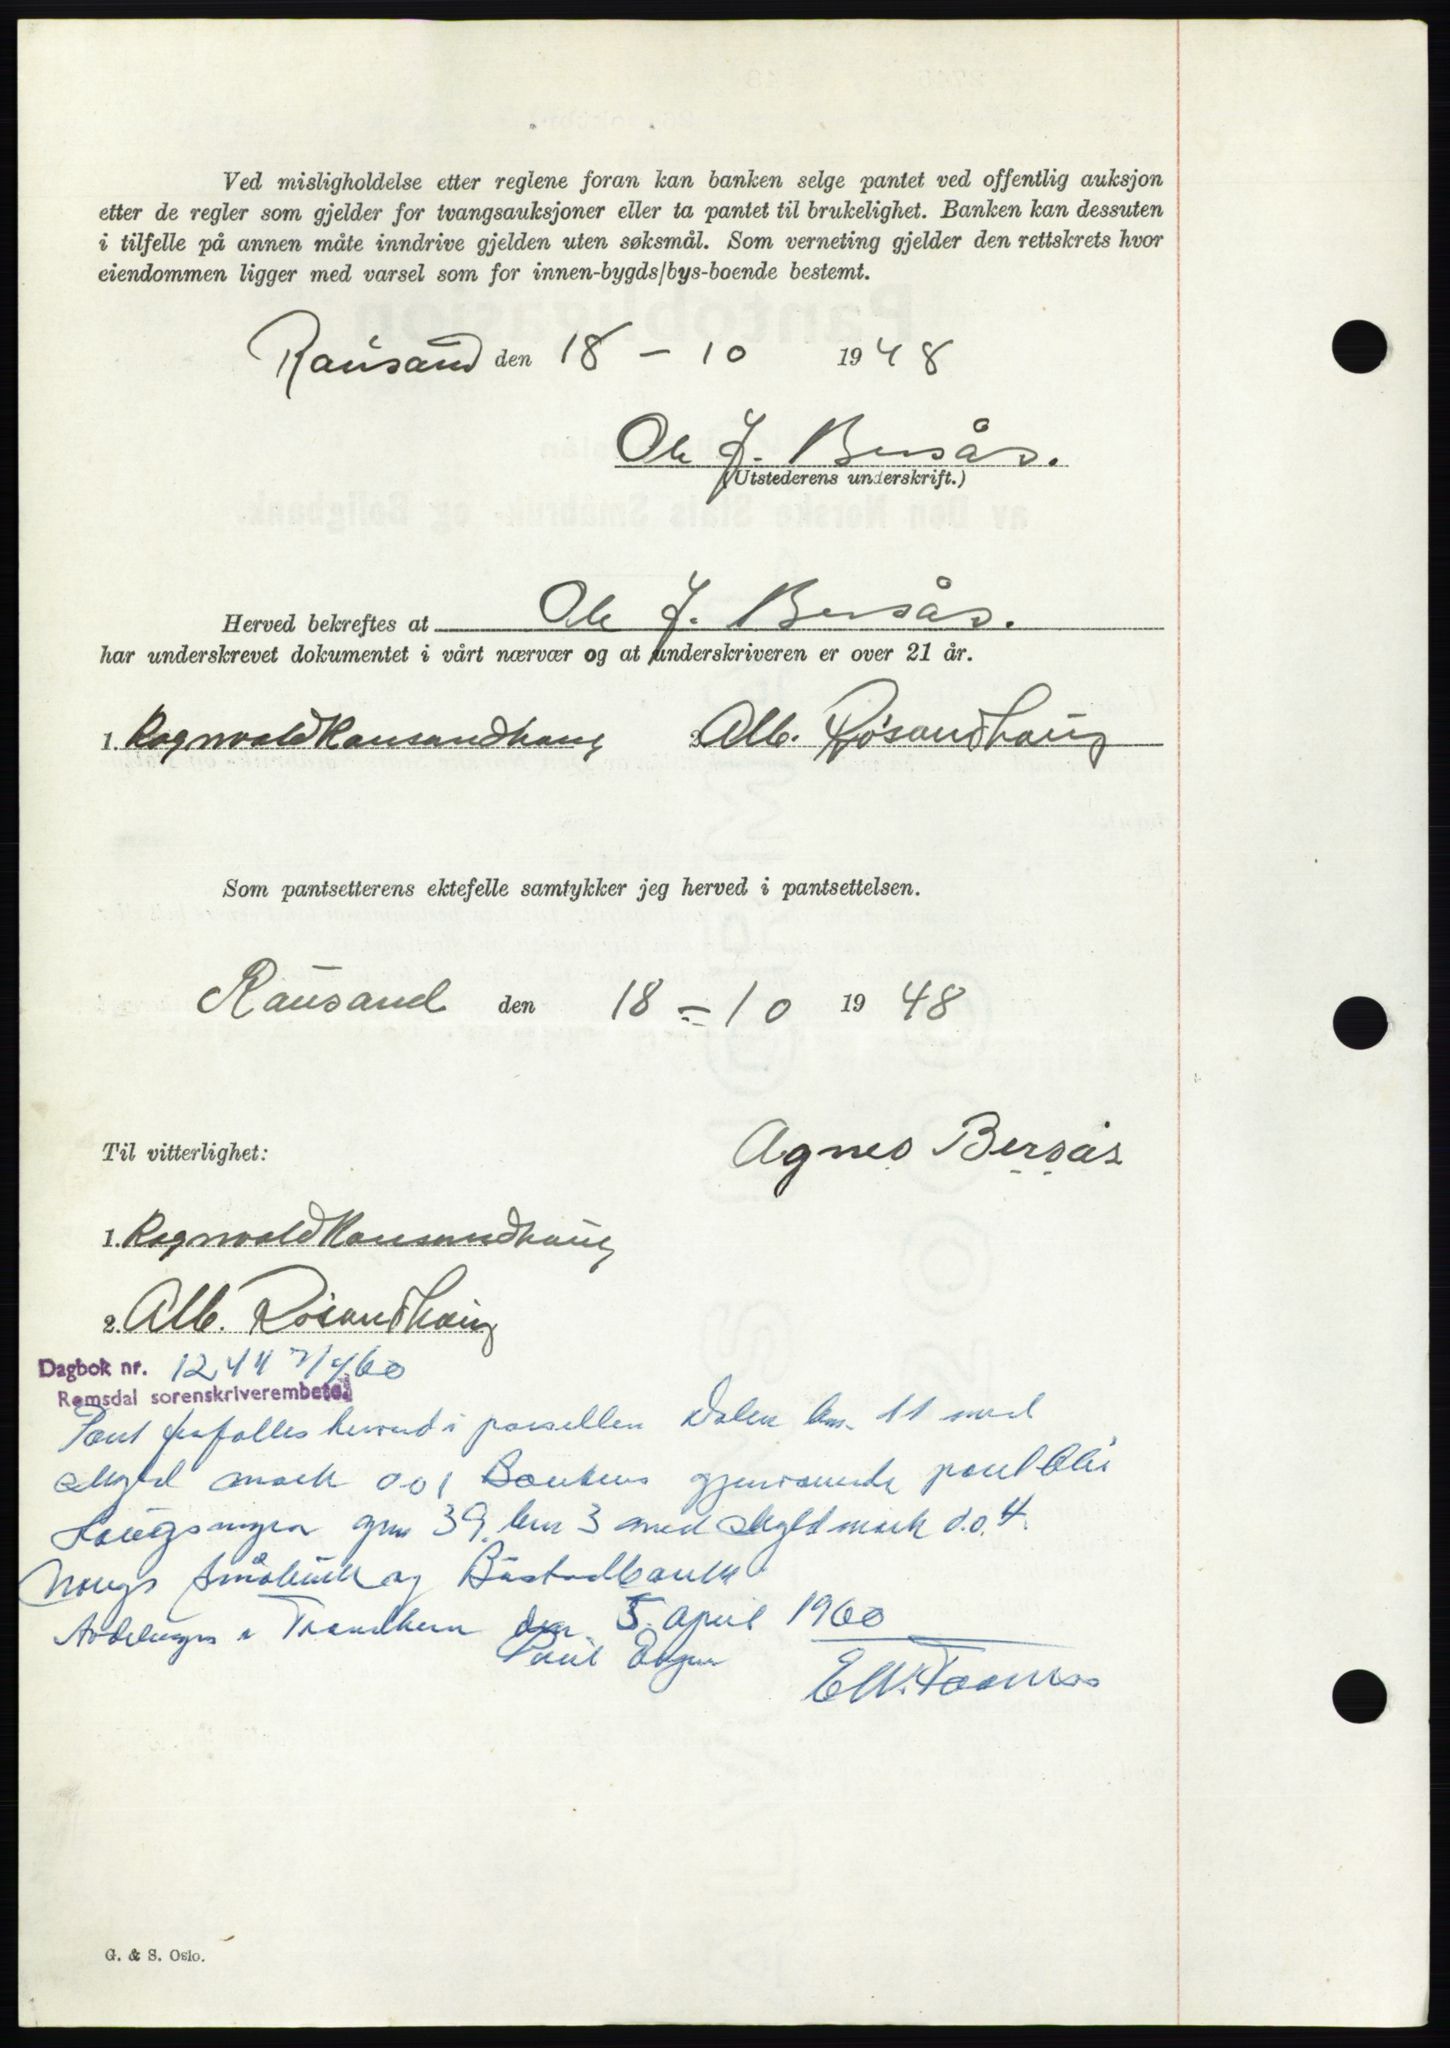 Ved misligholdelse etter reglene foran kan banken selge pantet ved offentlig auksjon
etter de regler som gjelder for tvangsauksjoner eller ta pantet til brukelighet. Banken kan dessuten
i tilfelle på annen måte inndrive gjelden uten søksmål. Som verneting gjelder den rettskrets hvor
eiendommen ligger med varsel som for innen-bygds/bys-boende bestemt.
Rausand den 18 - 10 1948
Ole J. Bersås.
(Utstederens underskrift.)
Herved bekreftes at Ole J. Bersås.
har underskrevet dokumentet i vårt nærvær og at underskriveren er over 21 år.
1. Ragnvald Rausandhaug 2. Alb. Røsandhaug
Som pantsetterens ektefelle samtykker jeg herved i pantsettelsen.
Rausand den 18 - 10 1948
Til vitterlighet: Agnes Bersås
1. Ragnvald Rausandhaug
2. Alb. Røsandhaug
Dagbok nr. 1244 7/4 60
Romsdal sorenskriverembete
Pant frafalles herved i parsellen Dalen bnr. 11 med
skyld mark 0.01 Bankens gjenværende pant blir
Haugsmyra gnr 39 bnr 3 med skyld mark 0.04.
Norges Småbruk og Bustadbank
Avdelingen i Trondheim den 5. april 1960
Paul